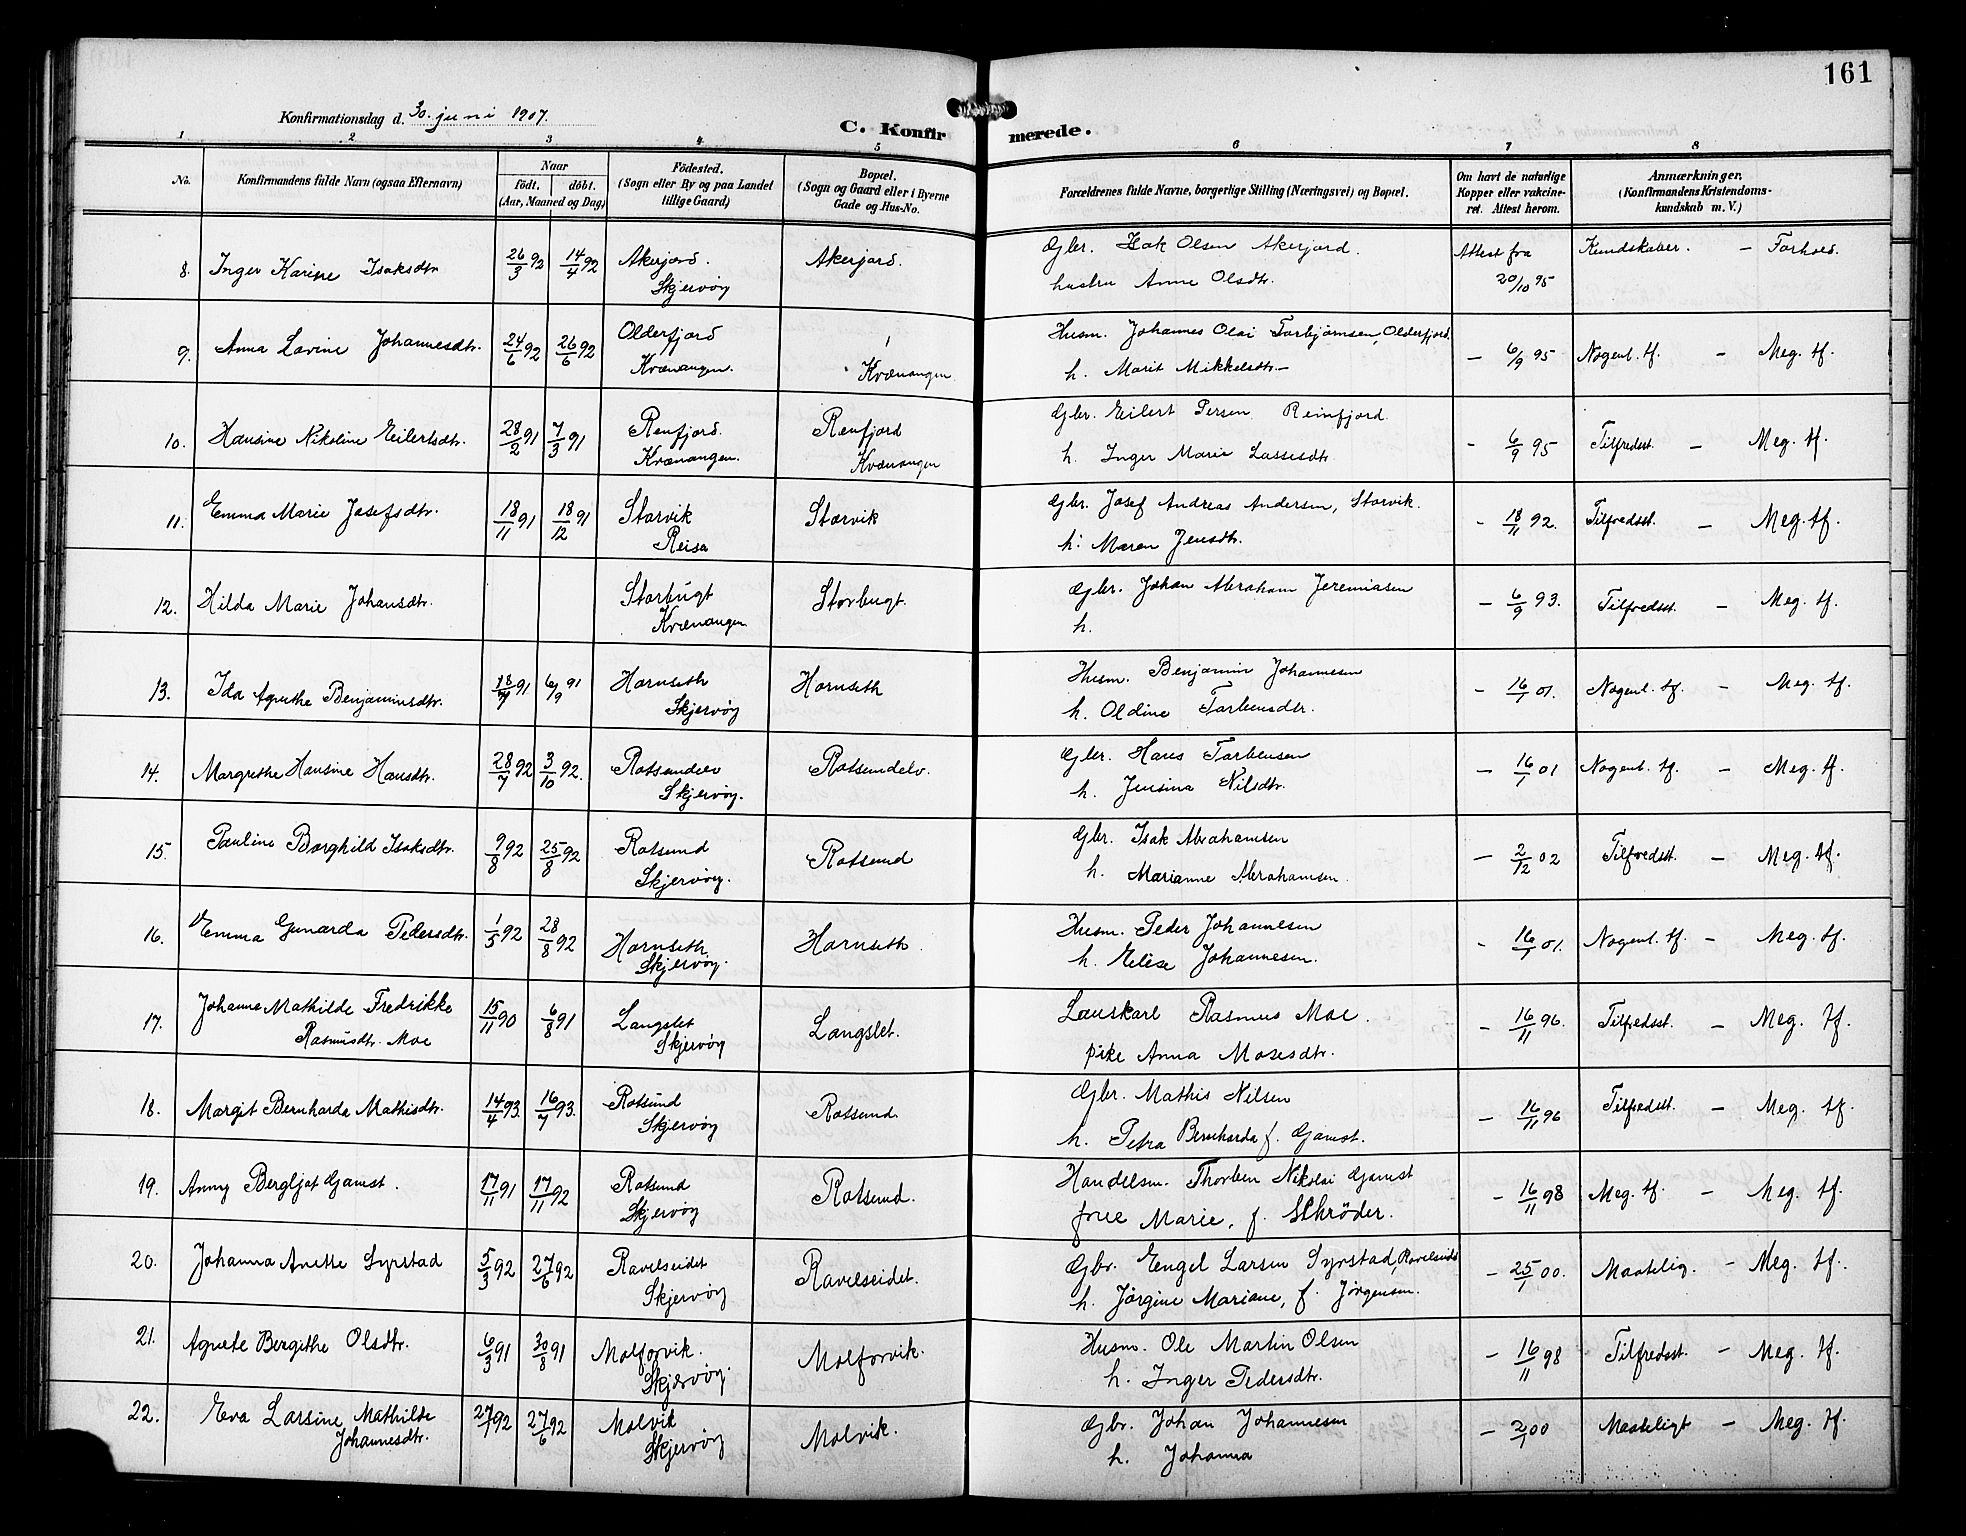 161
Konfirmationsdag d. 30. juni 1907.
C. Konfirmerede.
1 2 3 4 5 6 7 8
No. Konfirmandens fulde Navn (ogsaa Efternavn) Naar født. døbt. (Aar, Maaned og Dag) Fødested. (Sogn eller By og paa Landet tillige Gaard) Bopæl. (Sogn og Gaard eller i Byerne Gade og Hus-No. Forældrenes fulde Navne, borgerlige Stilling (Næringsvei) og Bopæl. Om havt de naturlige Kopper eller vakcineret. Attest herom. Anmærkninger. (Konfirmandens Kristendomskundskab m. V.)
8. Inger Karine Isaksdtr 26/3 92 14/4 92 Akerjord. Akerjord. Gbr. Isak Olsen Akerjord. Attest fra Kundskaber. – Forhold.
Skjervøy hustru Anne Olsdtr. 20/10 95
9. Anna Lovine Johannesdtr. 24/6 92 26/6 92 Olderfjord Husm. Johannes Olai Torbjørnsen, Olderfjord. – 6/9 95 Nogenl. tf. – Meg. tf.
Kvænangen. Kvænangen h. Marit Mikkelsdtr.–
10. Hansine Nikoline Eilertsdtr. 28/2 91 7/3 91 Renfjord. Renfjord Gbr. Eilert Persen Reinfjord. – 6/9 95 Tilfredsst. – Meg. tf.
Kvænangen. Kvænangen h. Inger Marie Lassesdtr
11. Emma Marie Josefsdtr. 18/11 91 18/12 91 Storvik Storvik Gbr. Josef Andreas Andersen, Storvik. – 18/11 92. Tilfredsst. – Meg. tf.
Reisa h. Maren Jensdtr.
12. Hilda Marie Johansdtr. Storbugt Storbugt. Gbr. Johan Abraham Jeremiasen – 6/9 93. Tilfredsst. – Meg. tf.
Kvænangen h.
13. Ida Agnethe Benjaminsdtr. 18/7 91 6/9 91 Hamseth Hamseth Husm. Benjamin Johannesen – 16/1 01. Nogenl. tf. – Meg. tf.
Skjervøy h. Oldine Torbensdtr.
14. Margrethe Hansine Hansdtr. 28/7 92 3/10 92. Rotsundelv Rotsundelv. Gbr. Hans Torbensen – 16/1 01 Nogenl. tf. – Meg. tf.
Skjervøy. h. Jensina Nilsdtr.
15. Pauline Borghild Isaksdtr. 9/8 92 25/8 92 Rotsund Rotsund Gbr. Isak Abrahamsen – 2/12 02 Tilfredsst. – Meg. tf.
Skjervøy. h. Marianne Abrahamsen.
16. Emma Gunarda Pedersdtr. 1/5 92 28/8 92 Hamseth Hamseth. Husm. Peder Johannesen – 16/1 01. Nogenl. tf. – Meg. tf.
Skjervøy. h. Elise Johannesen.
17. Johanne Mathilde Fredrikke 15/11 90 6/8 91 Langslet Langslet. Lauskarl Rasmus Moe. – 16/11 96. Tilfredsst. – Meg. tf.
Rasmusdtr. Moe Skjervøy pike Anna Mosesdtr.
18. Margit Bernharda Mathisdtr. 14/4 93 16/7 93. Rotsund Rotsund Gbr. Mathis Nilsen – 16/11 96 Tilfredsst. – Meg. tf.
Skjervøy h. Petra Bernharda f. Gamst.
19. Anny Bergljot Gamst. 17/11 91 17/11 92 Rotsund Rotsund. Handelsm. Thorben Nikolai Gamst – 16/11 98 Meg. tf. – Meg. tf.
Skjervøy frue Marie, f. Schrøder.
20. Johanna Anette Syrstad 5/3 92 27/6 92 Ravelseidet Ravelseidet. Gbr. Engel Larsen Syrstad, Ravelseidet – 25/1 00. Maatelig. – Meg. tf.
Skjervøy h. Jørgine Mariane, f. Jørgensen.
21. Agnete Bergithe Olsdtr. 6/3 91 30/8 91 Molforvik. Molforvik. Husm. Ole Martin Olsen – 16/11 98 Tilfredsst. – Meg. tf.
Skjervøy. h. Inger Pedersdtr.
22. Eva Larsine Mathilde 27/1 92 27/6 92 Molvik Molvik. Gbr. Johan Johannesen – 2/1 00 Maateligt – Meg. tf.
Johannesdtr. Skjervøy h. Johanna